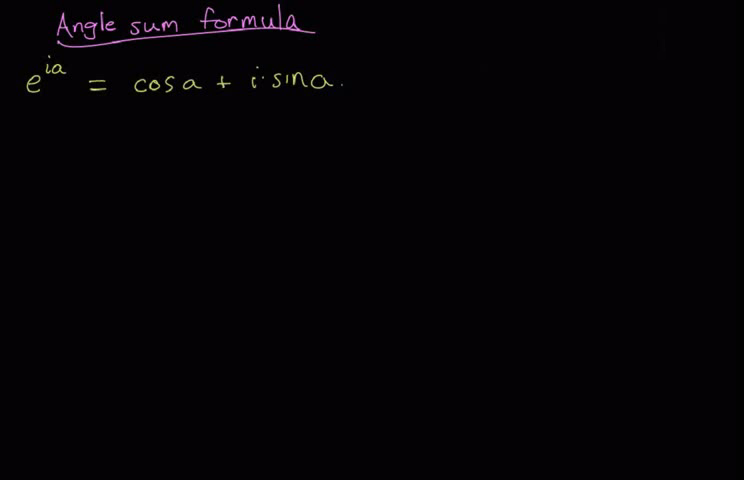 Angle sum formula
e^{ia} = cos a + i·sin a.